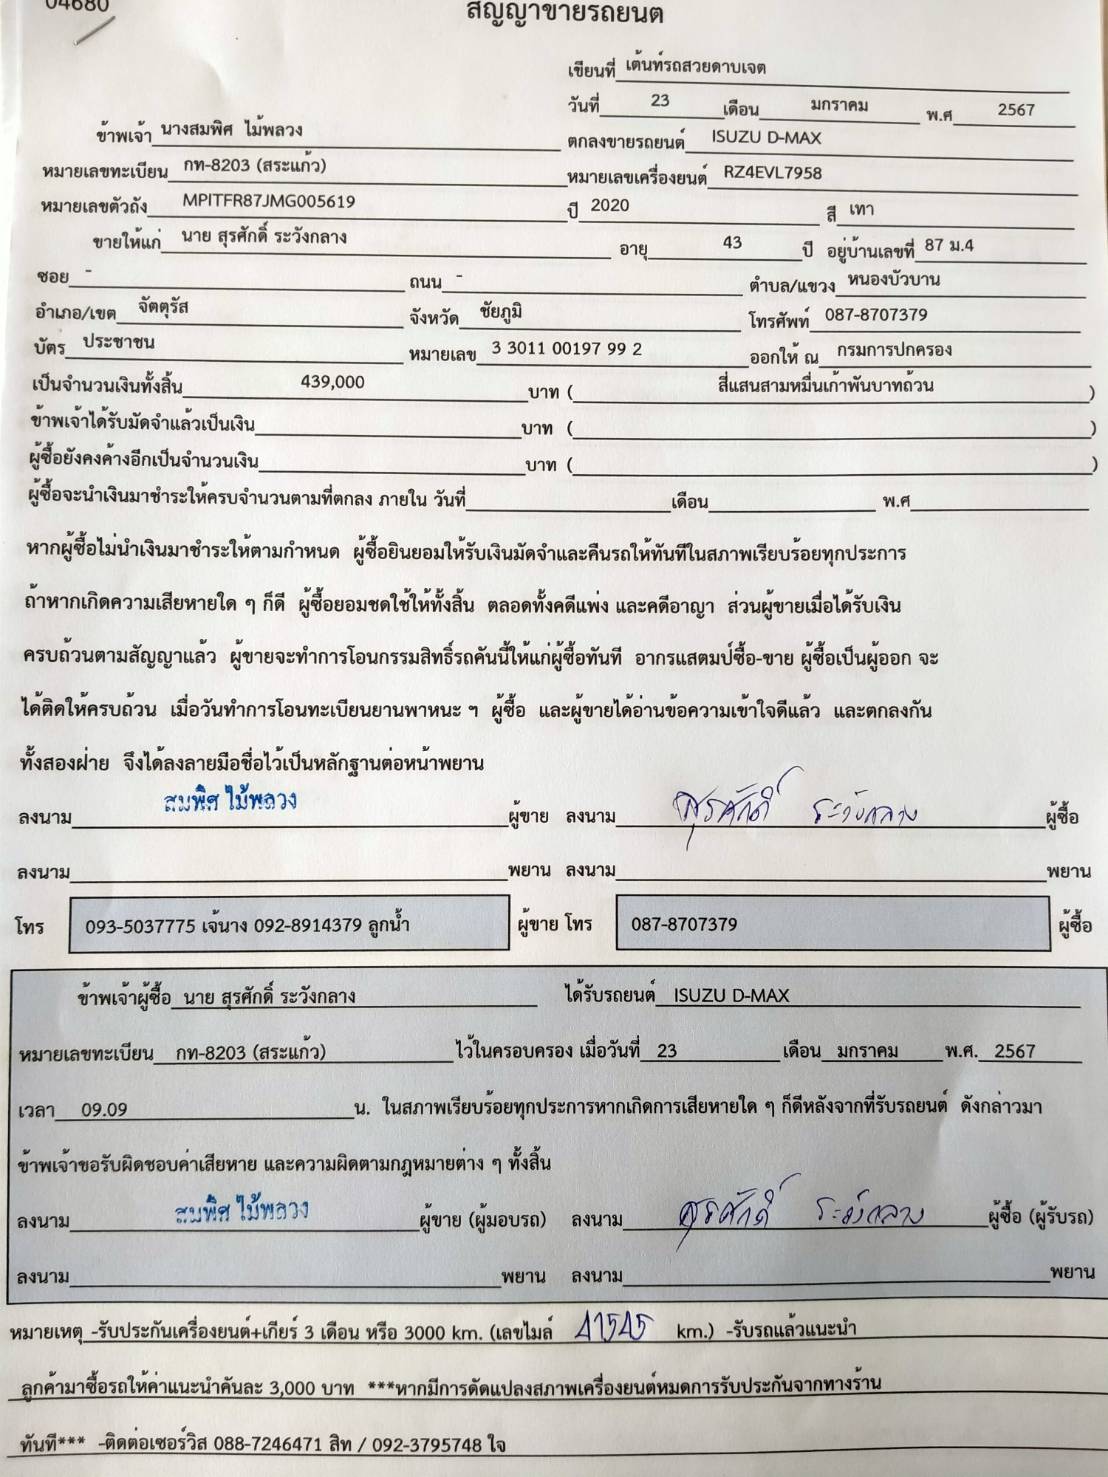 04680
สัญญาขายรถยนต์
เขียนที่ เต้นท์รถสวยดาบเจต
วันที่ 23 เดือน มกราคม พ.ศ 2567
ข้าพเจ้า นางสมพิศ ไม้พลวง ตกลงขายรถยนต์ ISUZU D-MAX
หมายเลขทะเบียน กท-8203 (สระแก้ว) หมายเลขเครื่องยนต์ RZ4EVL7958
หมายเลขตัวถัง MPITFR87JMG005619 ปี 2020 สี เทา
ขายให้แก่ นาย สุรศักดิ์ ระวังกลาง อายุ 43 ปี อยู่บ้านเลขที่ 87 ม.4
ซอย - ถนน - ตำบล/แขวง หนองบัวบาน
อำเภอ/เขต จัตตุรัส จังหวัด ชัยภูมิ โทรศัพท์ 087-8707379
บัตร ประชาชน หมายเลข 3 3011 00197 99 2 ออกให้ ณ กรมการปกครอง
เป็นจำนวนเงินทั้งสิ้น 439,000 บาท ( สี่แสนสามหมื่นเก้าพันบาทถ้วน )
ข้าพเจ้าได้รับมัดจำแล้วเป็นเงิน บาท ( )
ผู้ซื้อยังคงค้างอีกเป็นจำนวนเงิน บาท ( )
ผู้ซื้อจะนำเงินมาชำระให้ครบจำนวนตามที่ตกลง ภายใน วันที่ เดือน พ.ศ
หากผู้ซื้อไม่นำเงินมาชำระให้ตามกำหนด ผู้ซื้อยินยอมให้รับเงินมัดจำและคืนรถให้ทันทีในสภาพเรียบร้อยทุกประการ
ถ้าหากเกิดความเสียหายใด ๆ ก็ดี ผู้ซื้อยอมชดใช้ให้ทั้งสิ้น ตลอดทั้งคดีแพ่ง และคดีอาญา ส่วนผู้ขายเมื่อได้รับเงิน
ครบถ้วนตามสัญญาแล้ว ผู้ขายจะทำการโอนกรรมสิทธิ์รถคันนี้ให้แก่ผู้ซื้อทันที อากรแสตมป์ซื้อ-ขาย ผู้ซื้อเป็นผู้ออก จะ
ได้ติดให้ครบถ้วน เมื่อวันทำการโอนทะเบียนยานพาหนะ ฯ ผู้ซื้อ และผู้ขายได้อ่านข้อความเข้าใจดีแล้ว และตกลงกัน
ทั้งสองฝ่าย จึงได้ลงลายมือชื่อไว้เป็นหลักฐานต่อหน้าพยาน
ลงนาม สมพิศ ไม้พลวง ผู้ขาย ลงนาม สุรศักดิ์ ระวังกลาง ผู้ซื้อ
ลงนาม พยาน ลงนาม พยาน
โทร 093-5037775 เจ้นาง 092-8914379 ลูกน้ำ ผู้ขาย โทร 087-8707379 ผู้ซื้อ
ข้าพเจ้าผู้ซื้อ นาย สุรศักดิ์ ระวังกลาง ได้รับรถยนต์ ISUZU D-MAX
หมายเลขทะเบียน กท-8203 (สระแก้ว) ไว้ในครอบครอง เมื่อวันที่ 23 เดือน มกราคม พ.ศ. 2567
เวลา 09.09 น. ในสภาพเรียบร้อยทุกประการหากเกิดการเสียหายใด ๆ ก็ดีหลังจากที่รับรถยนต์ ดังกล่าวมา
ข้าพเจ้าขอรับผิดชอบค่าเสียหาย และความผิดตามกฎหมายต่าง ๆ ทั้งสิ้น
ลงนาม สมพิศ ไม้พลวง ผู้ขาย (ผู้มอบรถ) ลงนาม สุรศักดิ์ ระวังกลาง ผู้ซื้อ (ผู้รับรถ)
ลงนาม พยาน ลงนาม พยาน
หมายเหตุ -รับประกันเครื่องยนต์+เกียร์ 3 เดือน หรือ 3000 km. (เลขไมล์ 41545 km.) -รับรถแล้วแนะนำ
ลูกค้ามาซื้อรถให้ค่าแนะนำคันละ 3,000 บาท ***หากมีการดัดแปลงสภาพเครื่องยนต์หมดการรับประกันจากทางร้าน
ทันที*** -ติดต่อเซอร์วิส 088-7246471 สิท / 092-3795748 ใจ